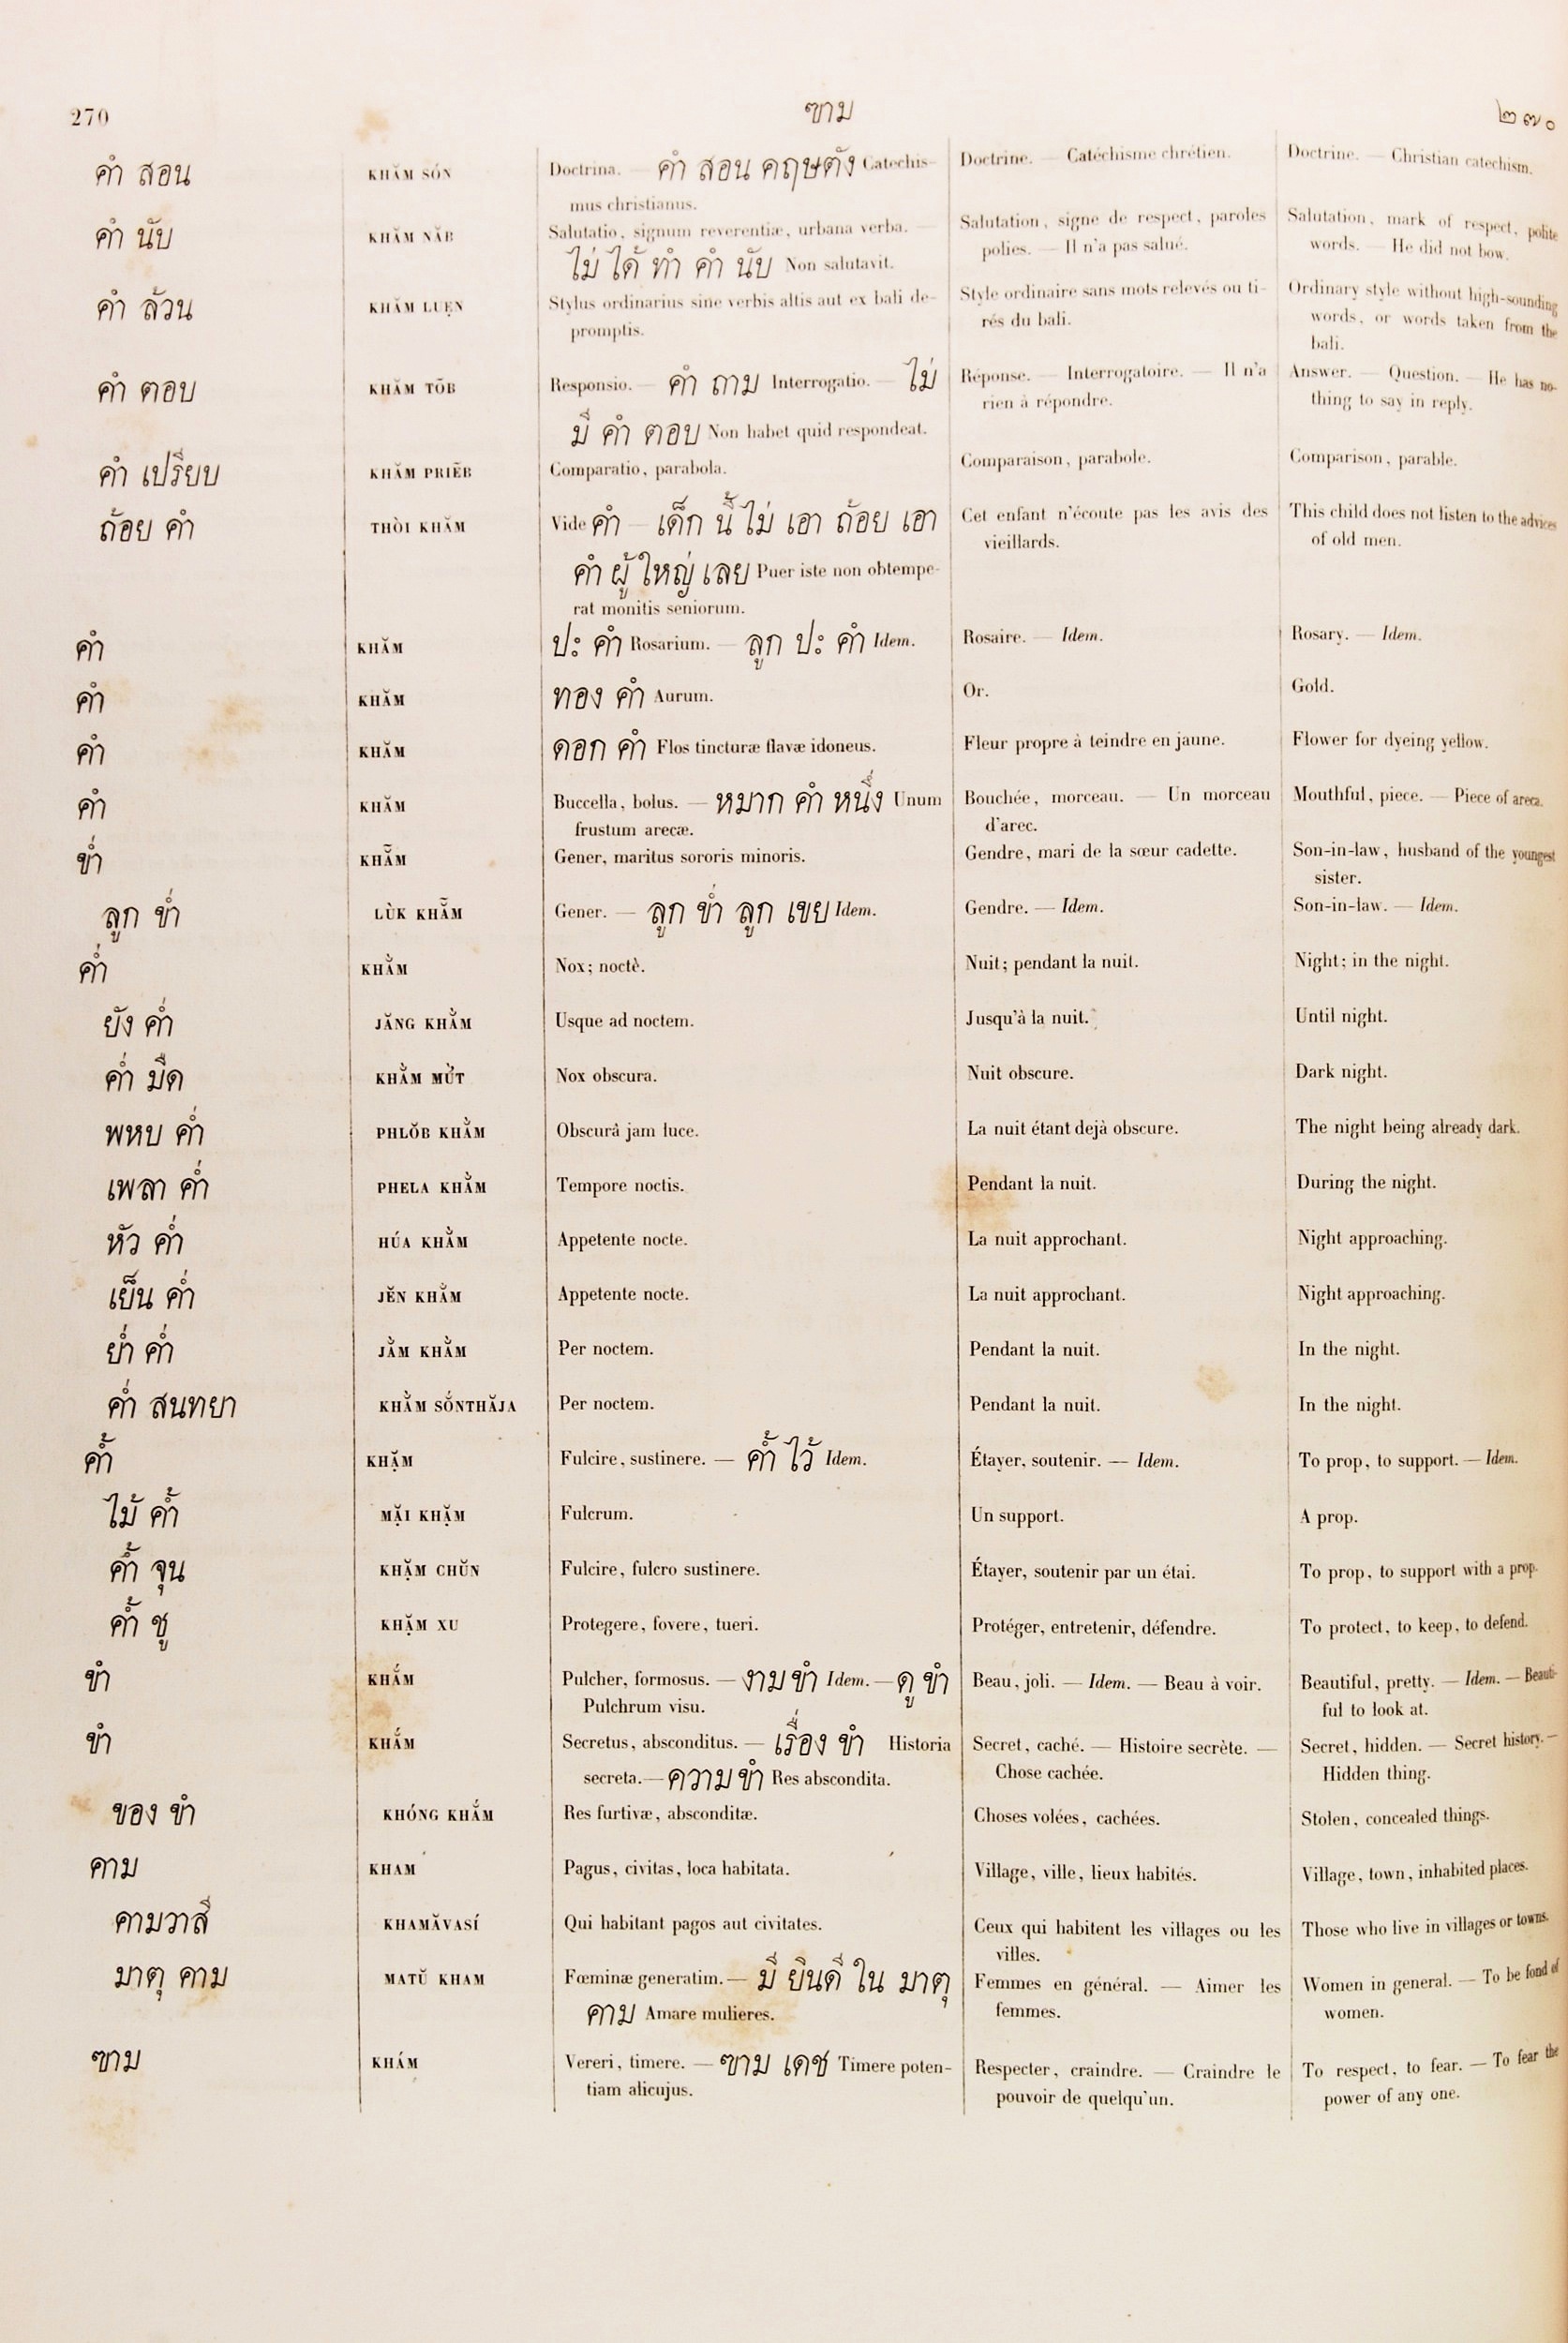 270 ฃาม ๒๗๐
คำ สอน KHĂM SÓN Doctrina. — คำ สอน คฤษตัง Catechis- Doctrine. — Catéchisme chrétien. Doctrine. — Christian catechism.
mus christianus.
คำ นับ KHĂM NĂB Salutatio, signum reverentiæ, urbana verba. — Salutation, signe de respect, paroles Salutation, mark of respect, polite
ไม่ ได้ ทำ คำ นับ Non salutavit. polies. — Il n'a pas salué. words. — He did not bow.
คำ ล้วน KHĂM LUẸN Stylus ordinarius sine verbis altis aut ex bali de- Style ordinaire sans mots relevés ou ti- Ordinary style without high-sounding
promptis. rés du bali. words, or words taken from the
bali.
คำ ตอบ KHĂM TŎB Responsio. — คำ ถาม Interrogatio. — ไม่ Réponse. — Interrogatoire. — Il n'a Answer. — Question. — He has no-
มี คำ ตอบ Non habet quid respondeat. rien à répondre. thing to say in reply.
คำ เปรียบ KHĂM PRIĔB Comparatio, parabola. Comparaison, parabole. Comparison, parable.
ถ้อย คำ THÒI KHĂM Vide คำ — เด็ก นี้ ไม่ เอา ถ้อย เอา Cet enfant n'écoute pas les avis des This child does not listen to the advices
คำ ผู้ ใหญ่ เลย Puer iste non obtempe- vieillards. of old men.
rat monitis seniorum.
คำ KHĂM ปะ คำ Rosarium. — ลูก ปะ คำ Idem. Rosaire. — Idem. Rosary. — Idem.
คำ KHĂM ทอง คำ Aurum. Or. Gold.
คำ KHĂM ดอก คำ Flos tincturæ flavæ idoneus. Fleur propre à teindre en jaune. Flower for dyeing yellow.
คำ KHĂM Buccella, bolus. — หมาก คำ หนึ่ง Unum Bouchée, morceau. — Un morceau Mouthful, piece. — Piece of areca.
frustum arecæ. d'arec.
ข่ำ KHẴM Gener, maritus sororis minoris. Gendre, mari de la sœur cadette. Son-in-law, husband of the youngest
sister.
ลูก ข่ำ LÙK KHẴM Gener. — ลูก ข่ำ ลูก เขย Idem. Gendre. — Idem. Son-in-law. — Idem.
ค่ำ KHẰM Nox; noctè. Nuit; pendant la nuit. Night; in the night.
ยัง ค่ำ JĂNG KHẰM Usque ad noctem. Jusqu'à la nuit. Until night.
ค่ำ มืด KHẰM MỨT Nox obscura. Nuit obscure. Dark night.
พหบ ค่ำ PHLŎB KHẰM Obscurâ jam luce. La nuit étant dejà obscure. The night being already dark.
เพลา ค่ำ PHELA KHẰM Tempore noctis. Pendant la nuit. During the night.
หัว ค่ำ HÚA KHẰM Appetente nocte. La nuit approchant. Night approaching.
เย็น ค่ำ JĔN KHẰM Appetente nocte. La nuit approchant. Night approaching.
ย่ำ ค่ำ JẰM KHẰM Per noctem. Pendant la nuit. In the night.
ค่ำ สนทยา KHẰM SŎ́NTHĂJA Per noctem. Pendant la nuit. In the night.
ค้ำ KHẶM Fulcire, sustinere. — ค้ำ ไว้ Idem. Étayer, soutenir. — Idem. To prop, to support. — Idem.
ไม้ ค้ำ MẶI KHẶM Fulcrum. Un support. A prop.
ค้ำ จุน KHẶM CHŬN Fulcire, fulcro sustinere. Étayer, soutenir par un étai. To prop, to support with a prop.
ค้ำ ชู KHẶM XU Protegere, fovere, tueri. Protéger, entretenir, défendre. To protect, to keep, to defend.
ขำ KHẮM Pulcher, formosus. — งาม ขำ Idem. — ดู ขำ Beau, joli. — Idem. — Beau à voir. Beautiful, pretty. — Idem. — Beauti-
Pulchrum visu. ful to look at.
ขำ KHẮM Secretus, absconditus. — เรื่อง ขำ Historia Secret, caché. — Histoire secrète. — Secret, hidden. — Secret history. —
secreta. — ความ ขำ Res abscondita. Chose cachée. Hidden thing.
ของ ขำ KHÓNG KHẮM Res furtivæ, absconditæ. Choses volées, cachées. Stolen, concealed things.
คาม KHAM Pagus, civitas, loca habitata. Village, ville, lieux habités. Village, town, inhabited places.
คามวาสี KHAMĂVASÍ Qui habitant pagos aut civitates. Ceux qui habitent les villages ou les Those who live in villages or towns.
villes.
มาตุ คาม MATŬ KHAM Fœminæ generatim. — มี ยินดี ใน มาตุ Femmes en général. — Aimer les Women in general. — To be fond of
คาม Amare mulieres. femmes. women.
ฃาม KHÁM Vereri, timere. — ฃาม เดช Timere poten- Respecter, craindre. — Craindre le To respect, to fear. — To fear the
tiam alicujus. pouvoir de quelqu'un. power of any one.